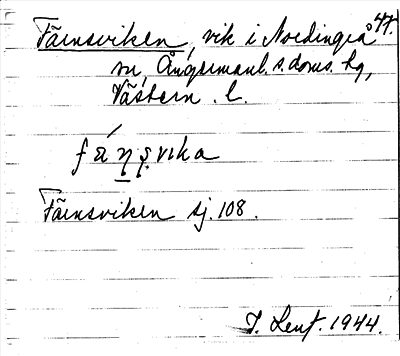 Färnsviken, vik i Nordingrå 47.
sn, Ångermanl. s. doms. hg,
Västern. l.
fä́ṇṣvika
Färnsviken sj. 108.
J. Lenf. 1944.